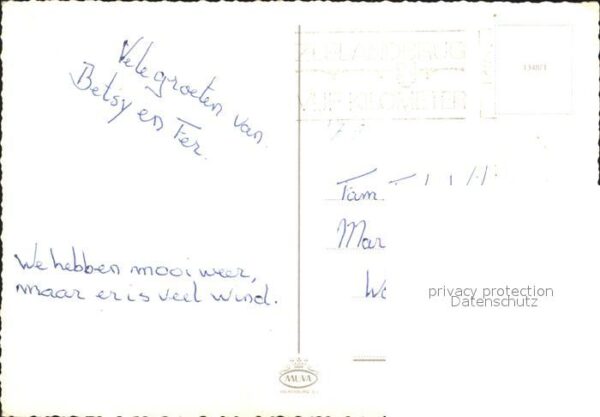 Vele groeten van
Betsy en Fer.
We hebben mooi weer,
maar er is veel wind.
ZEELANDBRUG
VIJF KILOMETER
Fam.
Mar
We
privacy protection
Datenschutz
MUVA